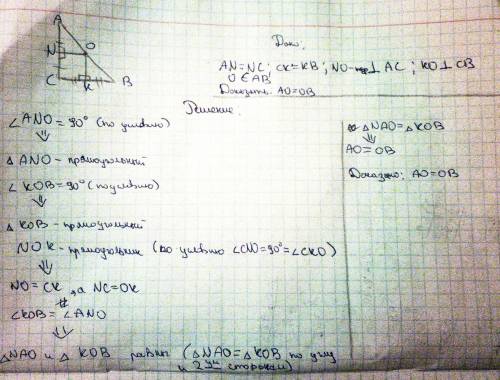 A
N
O
C
K
B
Дано:
AN=NC; CK=KB; NO ⊥ AC; KO ⊥ CB
O ∈ AB
Доказать: AO=OB
Решение:
∠ANO = 90° (по условию)
⇓
△ANO - прямоугольный
∠KOB = 90° (по условию)
⇓
△KOB - прямоугольный
NOK - прямоугольник (по условию ∠CNO=90°=∠CKO)
⇓
NO=CK, а NC=OK
∠KOB = ∠ANO
⇓
△NAO и △KOB равны (△NAO=△KOB по углу
и 2ум сторонам)
△NAO=△KOB
⇓
AO=OB
Доказано: AO=OB